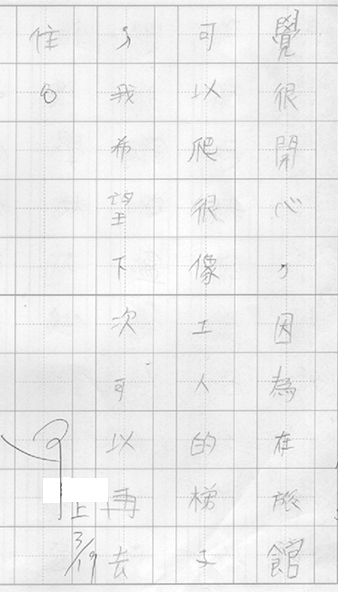 覺很開心，因為在旅館
可以爬很像工人的梯子
，我希望下次可以再去
住。
上 3/19